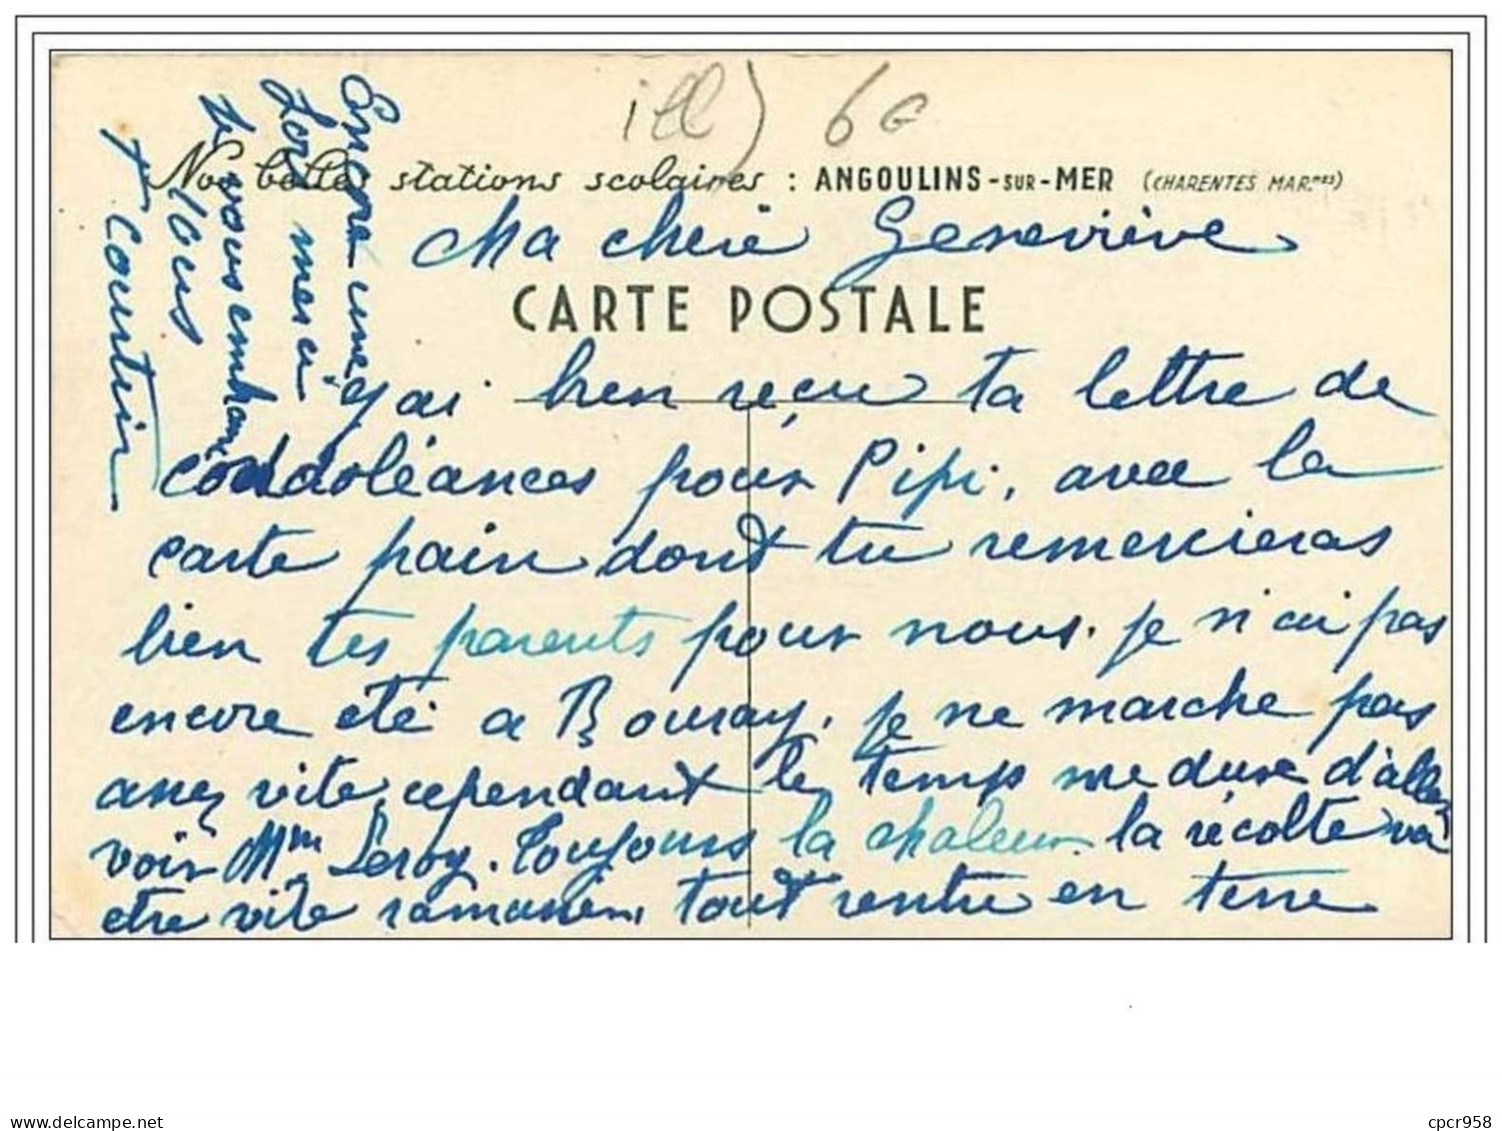 ill) 6 €
Nos belles stations scolaires : ANGOULINS-SUR-MER (CHARENTES MAR.MES)
Ma chérie Geneviève
CARTE POSTALE
J'ai bien reçu ta lettre de
condoléances pour Pipi, avec la
carte pain dont tu remercieras
bien tes parents pour nous. je n'ai pas
encore été a Bouray, je ne marche pas
assez vite, cependant le temps me dure d'aller
voir Mme Leroy. Toujours la chaleur. la récolte va
etre vite ramassée, tout rentre en terre
Encore une
fois merci
vous embrasse
tous
Courtin
cpcr958